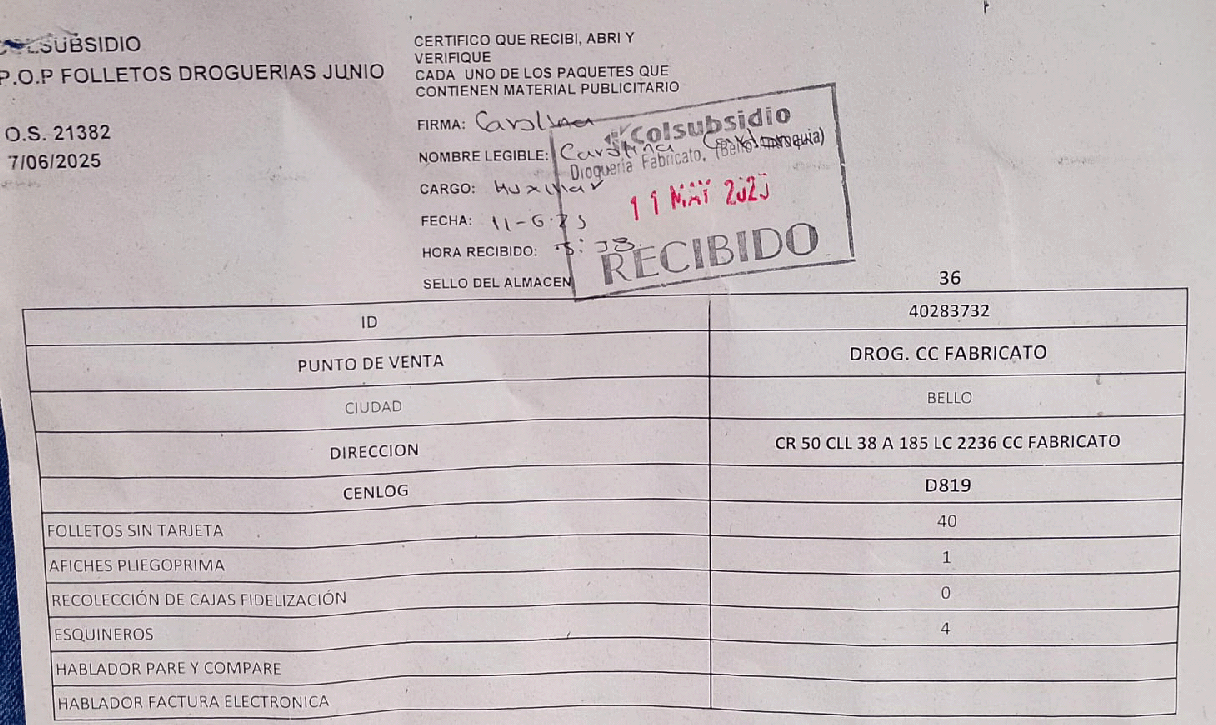 COLSUBSIDIO
P.O.P FOLLETOS DROGUERIAS JUNIO
O.S. 21382
7/06/2025
CERTIFICO QUE RECIBI, ABRI Y
VERIFIQUE
CADA UNO DE LOS PAQUETES QUE
CONTIENEN MATERIAL PUBLICITARIO
FIRMA: Carolina
NOMBRE LEGIBLE: Carolina
CARGO: Auxiliar
FECHA: 11-6-25
HORA RECIBIDO:
SELLO DEL ALMACEN
Colsubsidio
Drogueria Fabricato. (Bello Antioquia)
11 MAY 2025
RECIBIDO
36
ID 40283732
PUNTO DE VENTA DROG. CC FABRICATO
CIUDAD BELLO
DIRECCION CR 50 CLL 38 A 185 LC 2236 CC FABRICATO
CENLOG D819
FOLLETOS SIN TARJETA 40
AFICHES PLIEGOPRIMA 1
RECOLECCIÓN DE CAJAS FIDELIZACIÓN 0
ESQUINEROS 4
HABLADOR PARE Y COMPARE
HABLADOR FACTURA ELECTRONICA